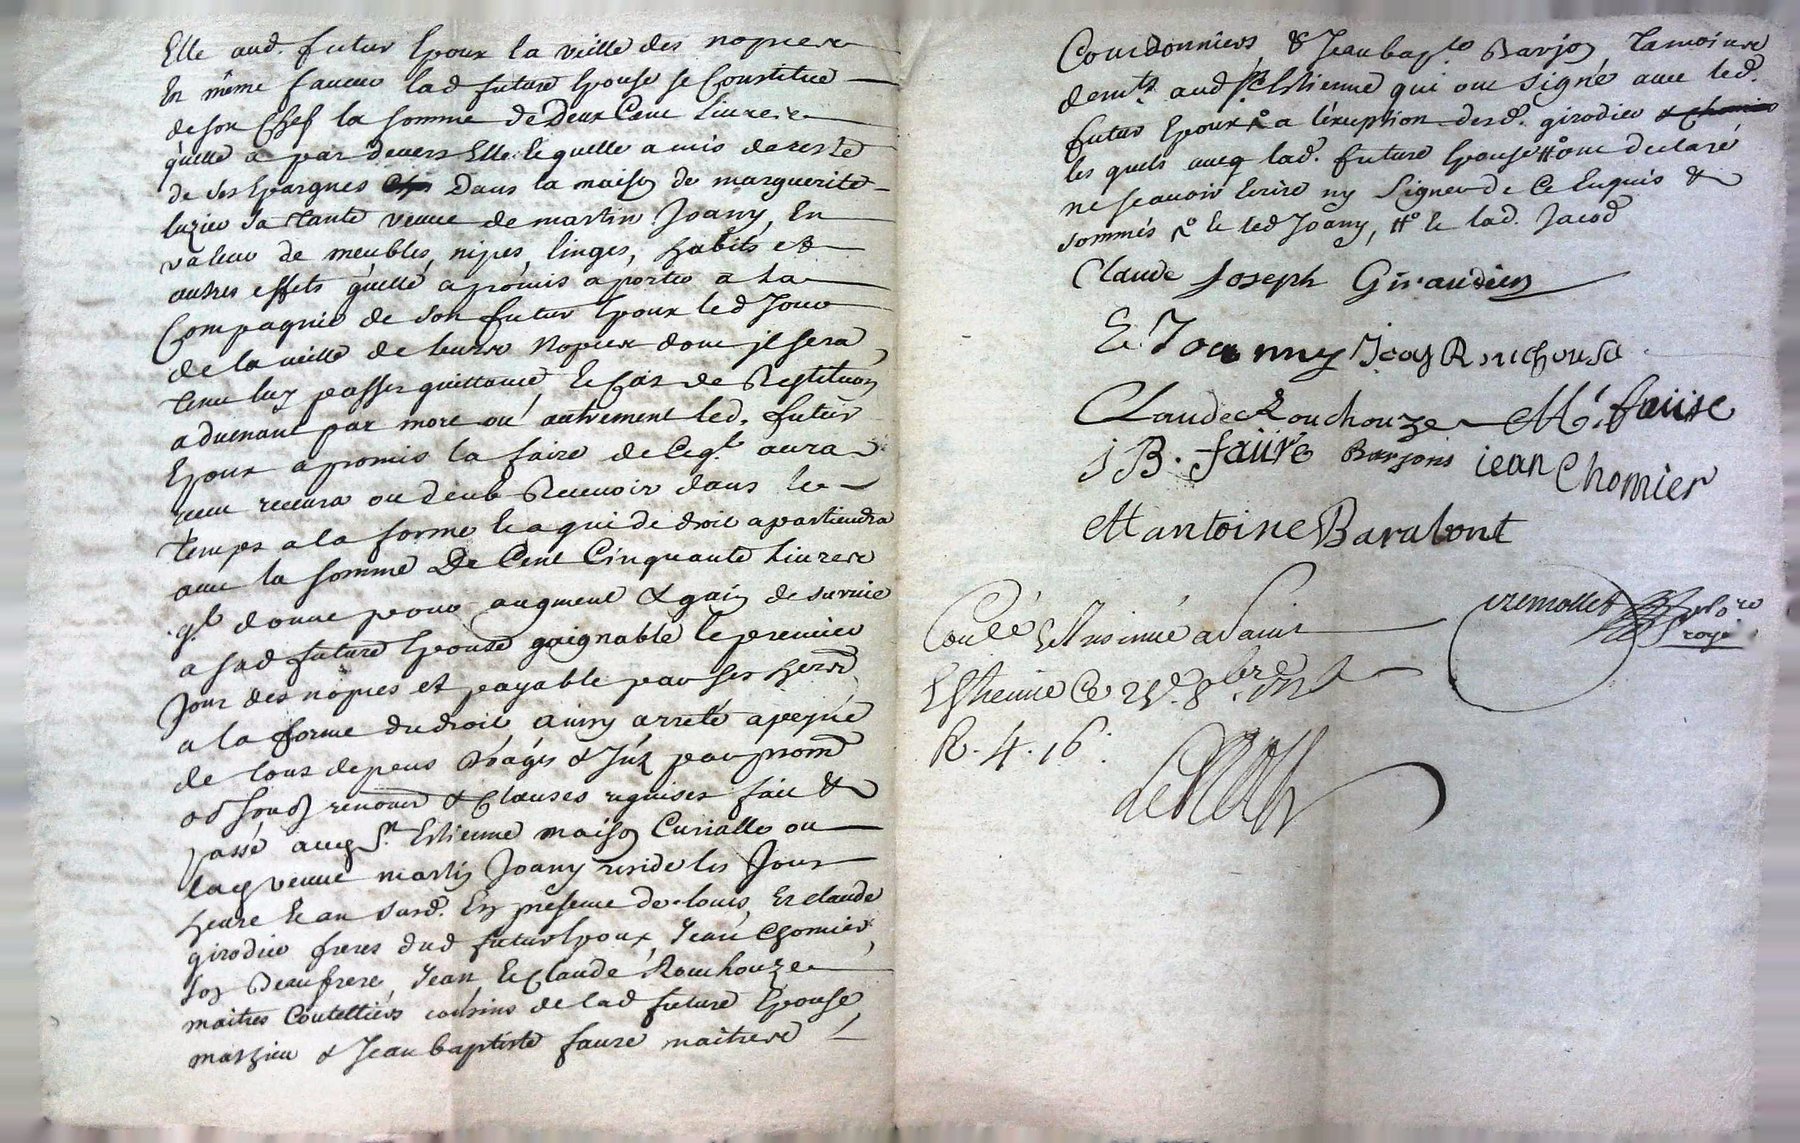 Elle aud. futur Epoux la veille des nopces
En même faveur lad future Epouse se Constitue
de son Chef la somme de Deux Cent Livres
quelle a par devers Elle lequelle a mis de reste
de ses Epargnes Dans la maison de marguerite
luzier sa tante veuve de martin Joany, En
valeur de meubles, nipes, linges, habits et
autres effets quelle a promis aporter a la
Compagnie de son futur Epoux led Jour
de la veille de leurs Nopces dont jl sera
tenu luy passer quittance Le Cas de Restitution
advenant par mort ou autrement led. futur
Epoux a promis la faire de Ceq.l aura
receu recevra ou deub Recevoir dans les
temps a la forme Le a qui de droit apartiendra
avec la somme De Cent Cinquante Livres
q.l donne pour augment & gain de survie
a sad future Epouse gaignable le premier
Jour des nopces et payable par ses hers
a la forme du droit ainsy arreté a peyne
de tous depens & par prom
renon & Clauses requises fait &
passé aud St. Estienne maison Curialle ou
lad veuve martin Joany reside les Jour
heure Le an susd. En présence de Louis, Et claude
girodier freres dud futur Epoux, Jean Chomier
son Beaufrere, Jean Le Claude Rouchouze
maitres Coutelliers cousins de lad future Epouse
mathieu & Jean baptiste faure maitres
Courdonniers & Jean bap.te Barjon Tamoins
demts. aud St Estienne qui ont signé avec led.
futur Epoux a l'exeption desd. girodier &
les quels avec lad. future Epouse ont declaré
ne scavoir Ecrire ny signer de Ce Enquis &
sommés Le led Joany, Le lad. Jacod
Claude Joseph Giraudier
E. Joanny Jean Rouchouse
Claude Rouchouze M. faure
J B. faure Barjons jean Chomier
M antoine Baralont
vremollet Nore
royal
Conlé & Insinué a Saint
Estienne Ce 8bre
R. 4. 16